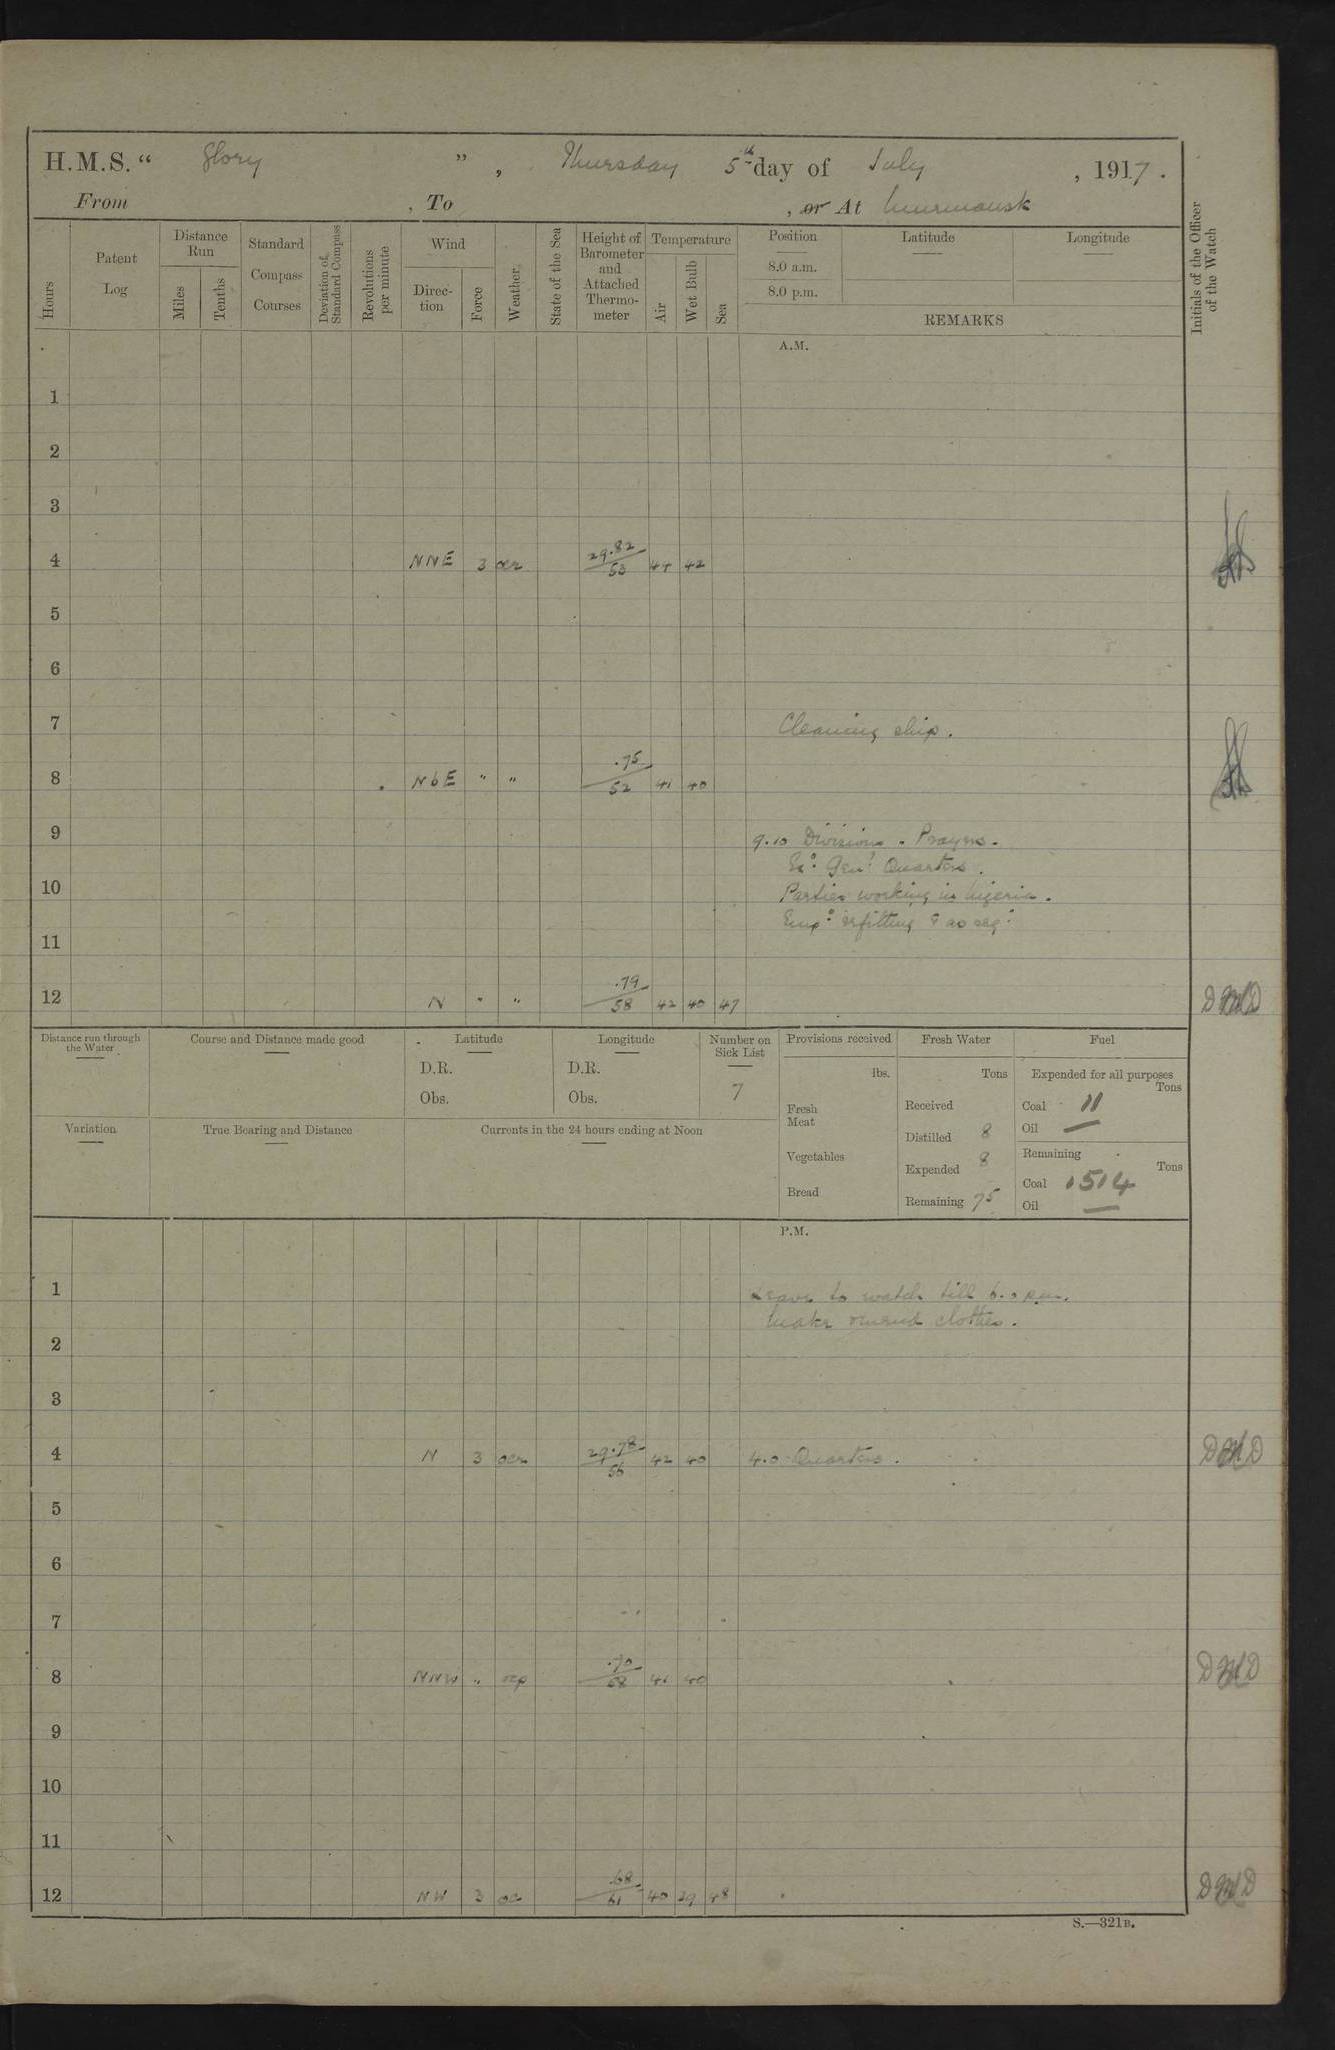 H.M.S. “ Glory ” , Thursday 5th day of July , 1917 .
From , To , or At Murmansk
Hours
Patent Log
Distance Run
Miles
Tenths
Standard Compass Courses
Deviation of Standard Compass
Revolutions per minute
Wind
Direction
Force
Weather
State of the Sea
Height of Barometer and Attached Thermometer
Temperature
Air
Wet Bulb
Sea
Position Latitude Longitude
8.0 a.m.
8.0 p.m.
REMARKS
Initials of the Officer of the Watch
A.M.
1
2
3
4 NNE 3 29.82 53 44 42
5
6
7 Cleaning ship.
8 NbE " " .75 52 41 40
9 9.10 Divisions. Prayers.
Exo. Genl Quarters.
10 Parties working in Nigeria.
Empo refitting & as reqo
11
12 N " " .79 58 42 40 47 DMD
Distance run through the Water
Course and Distance made good
Latitude
D.R.
Obs.
Longitude
D.R.
Obs.
Number on Sick List
7
Provisions received
lbs.
Fresh Meat
Vegetables
Bread
Fresh Water
Tons
Received
Distilled 8
Expended 8
Remaining 75
Fuel
Expended for all purposes
Tons
Coal 11
Oil —
Remaining
Tons
Coal 1514
Oil —
Variation
True Bearing and Distance
Currents in the 24 hours ending at Noon
P.M.
1 Leave to watch till 6.0 p.m.
Make & mend clothes.
2
3
4 N 3 29.78 56 42 40 4.0 Quarters. DMD
5
6
7
8 NNW " .70 58 41 40 DMD
9
10
11
12 NW 3 .68 61 40 39 48 DMD
S.—321B.